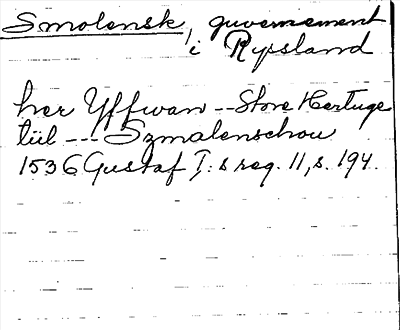 Smolensk, guvernement
i Ryssland
her Yffwan -- Store Hertuge
tiil --- Szmalenschou
1536 Gustaf I:s reg. 11, s. 194.